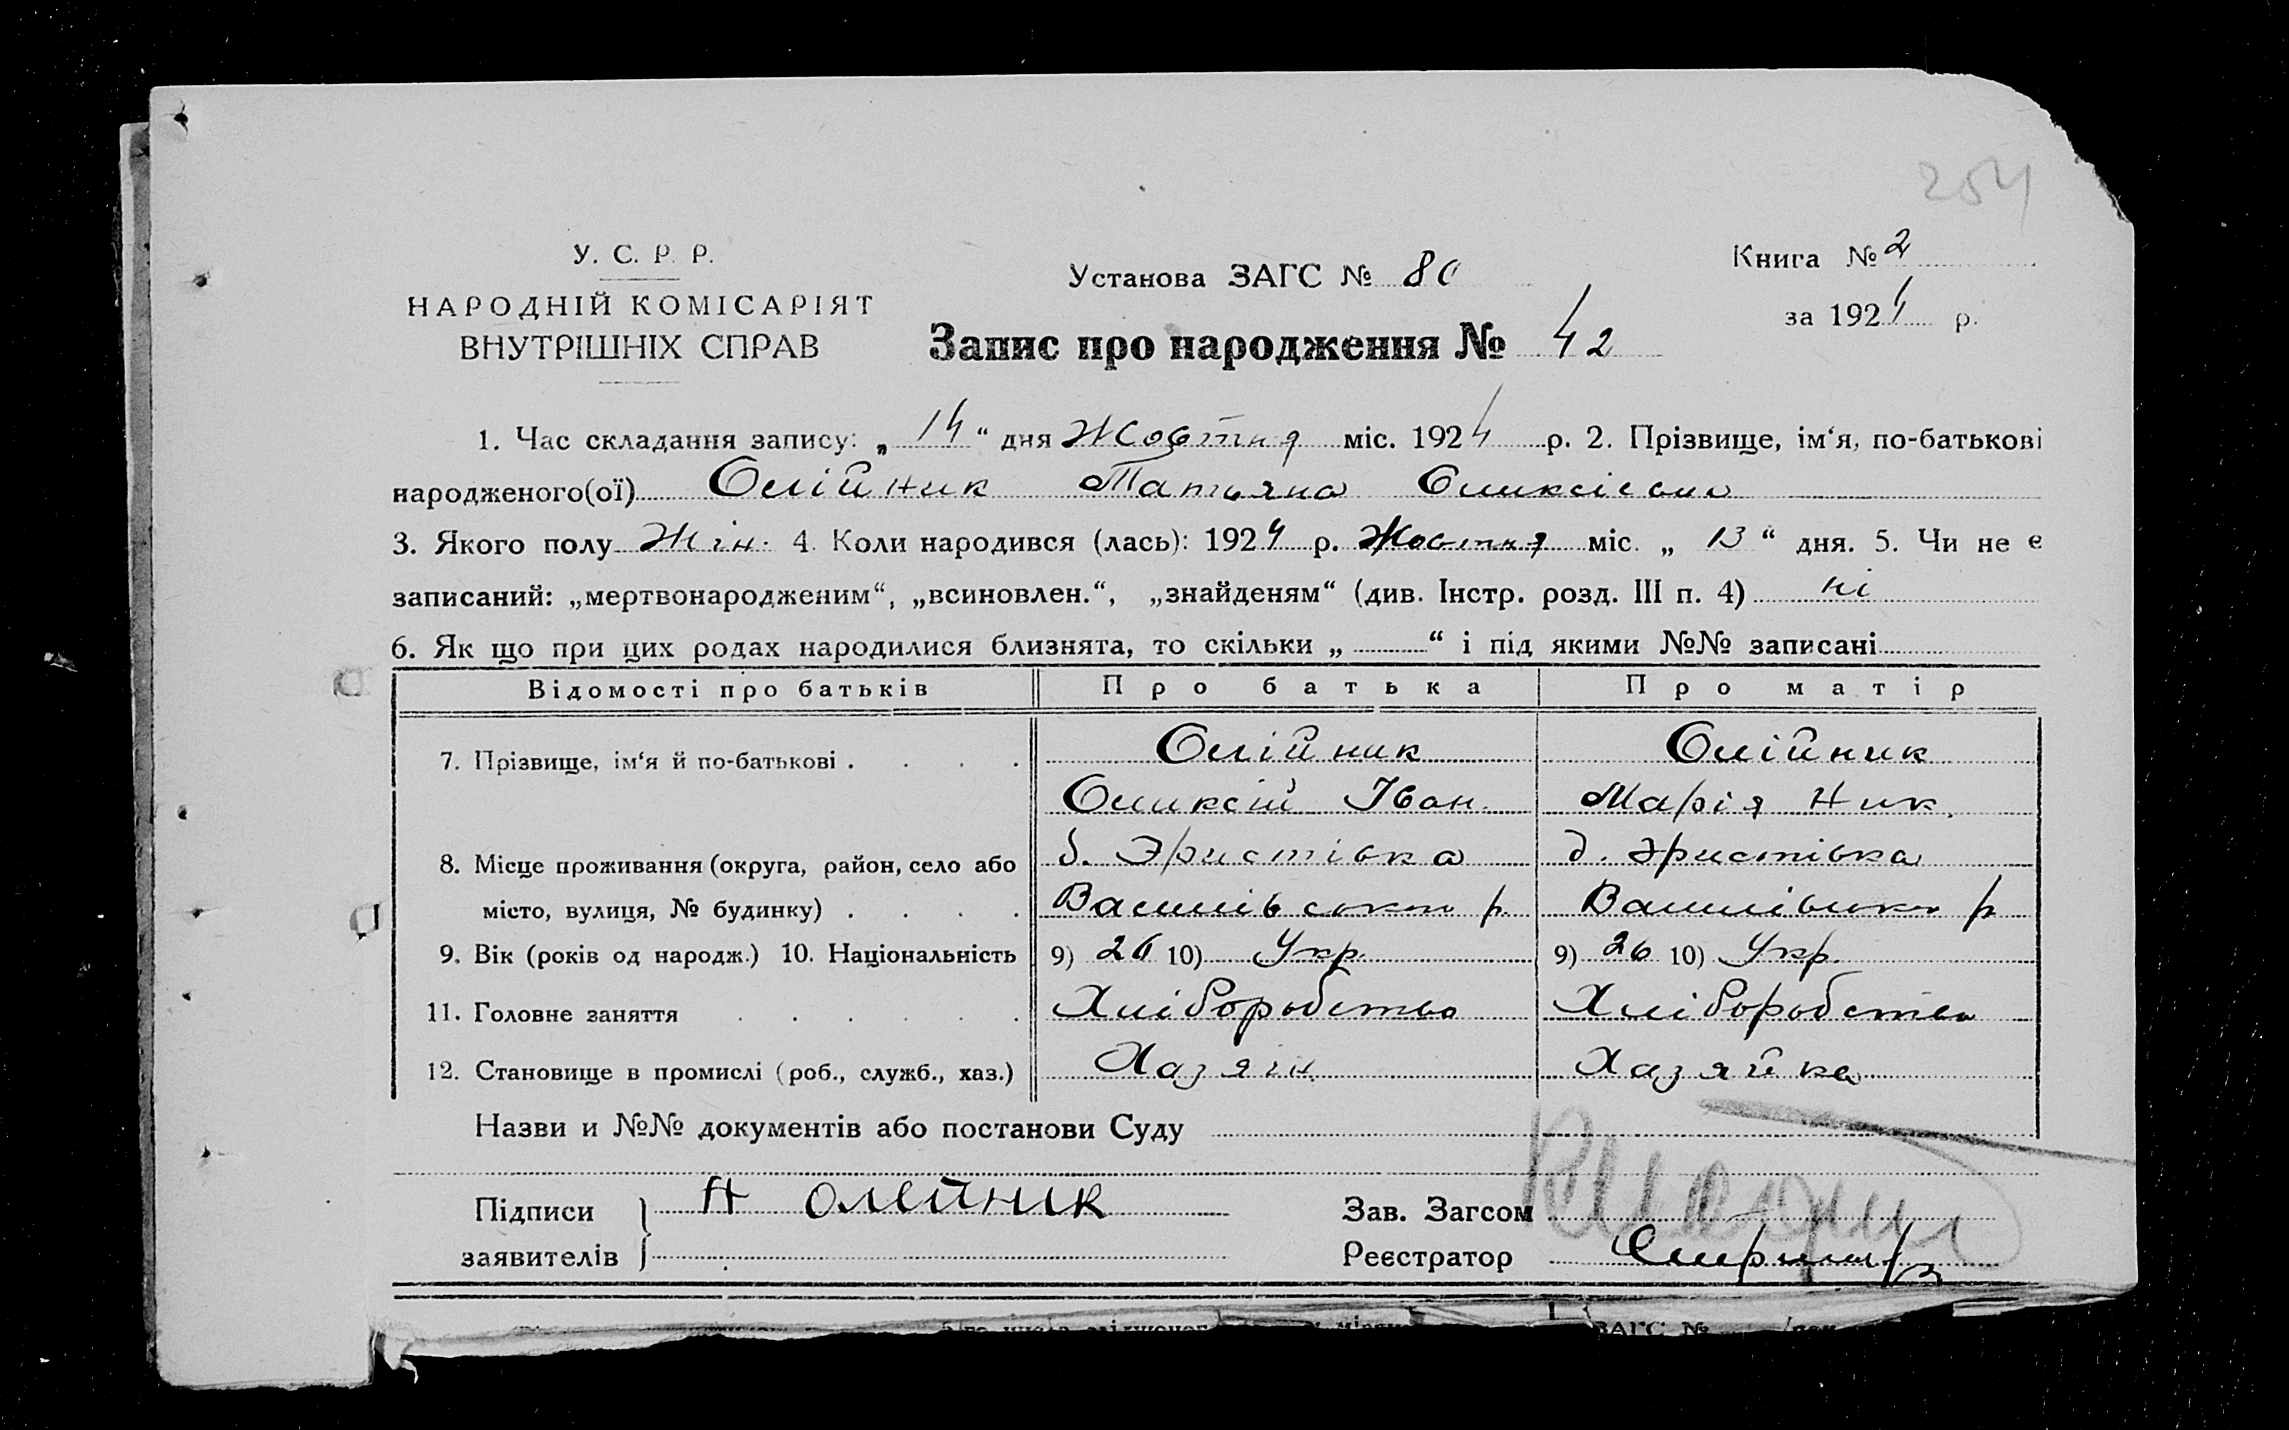 254
У. С. Р. Р.
НАРОДНІЙ КОМІСАРІЯТ
ВНУТРІШНІХ СПРАВ
Установа ЗАГС № 80
Книга № 2
за 1924 р.
Запис про народження № 42
1. Час складання запису: „ 14 “ дня Жовтня міс. 1924 р. 2. Прізвище, ім‘я, по-батькові
народженого(ої) Олійник Татьяна Олексієвна
3. Якого полу Жін. 4. Коли народився (лась): 1924 р. Жовтня міс. „ 13 “ дня. 5. Чи не є
записаний: „мертвонародженим“, „всиновлен.“, „знайденям“ (див. Інстр. розд. III п. 4) ні
6. Як що при цих родах народилися близнята, то скільки „ “ і під якими №№ записані
Відомості про батьків Про батька Про матір
7. Прізвище, ім‘я й по-батькові Олійник Олійник
Олексій Іван. Марія Ник.
8. Місце проживання (округа, район, село або д. Эристівка д. Эристівка
місто, вулиця, № будинку) р. р
9. Вік (років од народж.) 10. Національність 9) 26 10) Укр. 9) 26 10) Укр.
11. Головне заняття Хліборобство Хліборобство
12. Становище в промислі (роб., служб., хаз.) Хазяін. Хазяйка
Назви и №№ документів або постанови Суду
Підписи Н Олейник Зав. Загсом
заявителів Реєстратор
ЗАГС №